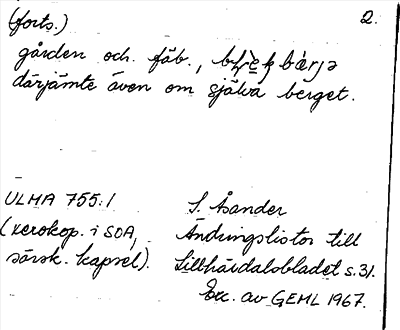 (forts.) 2.
gården och fäb.,
därjämte även om själva berget.
ULMA 755:1 S. Åsander
(xerokop. i SOA, Ändringslistor till
särsk. kapsel). Lillhärdalsbladet s. 31.
Exc. av GEML 1967.